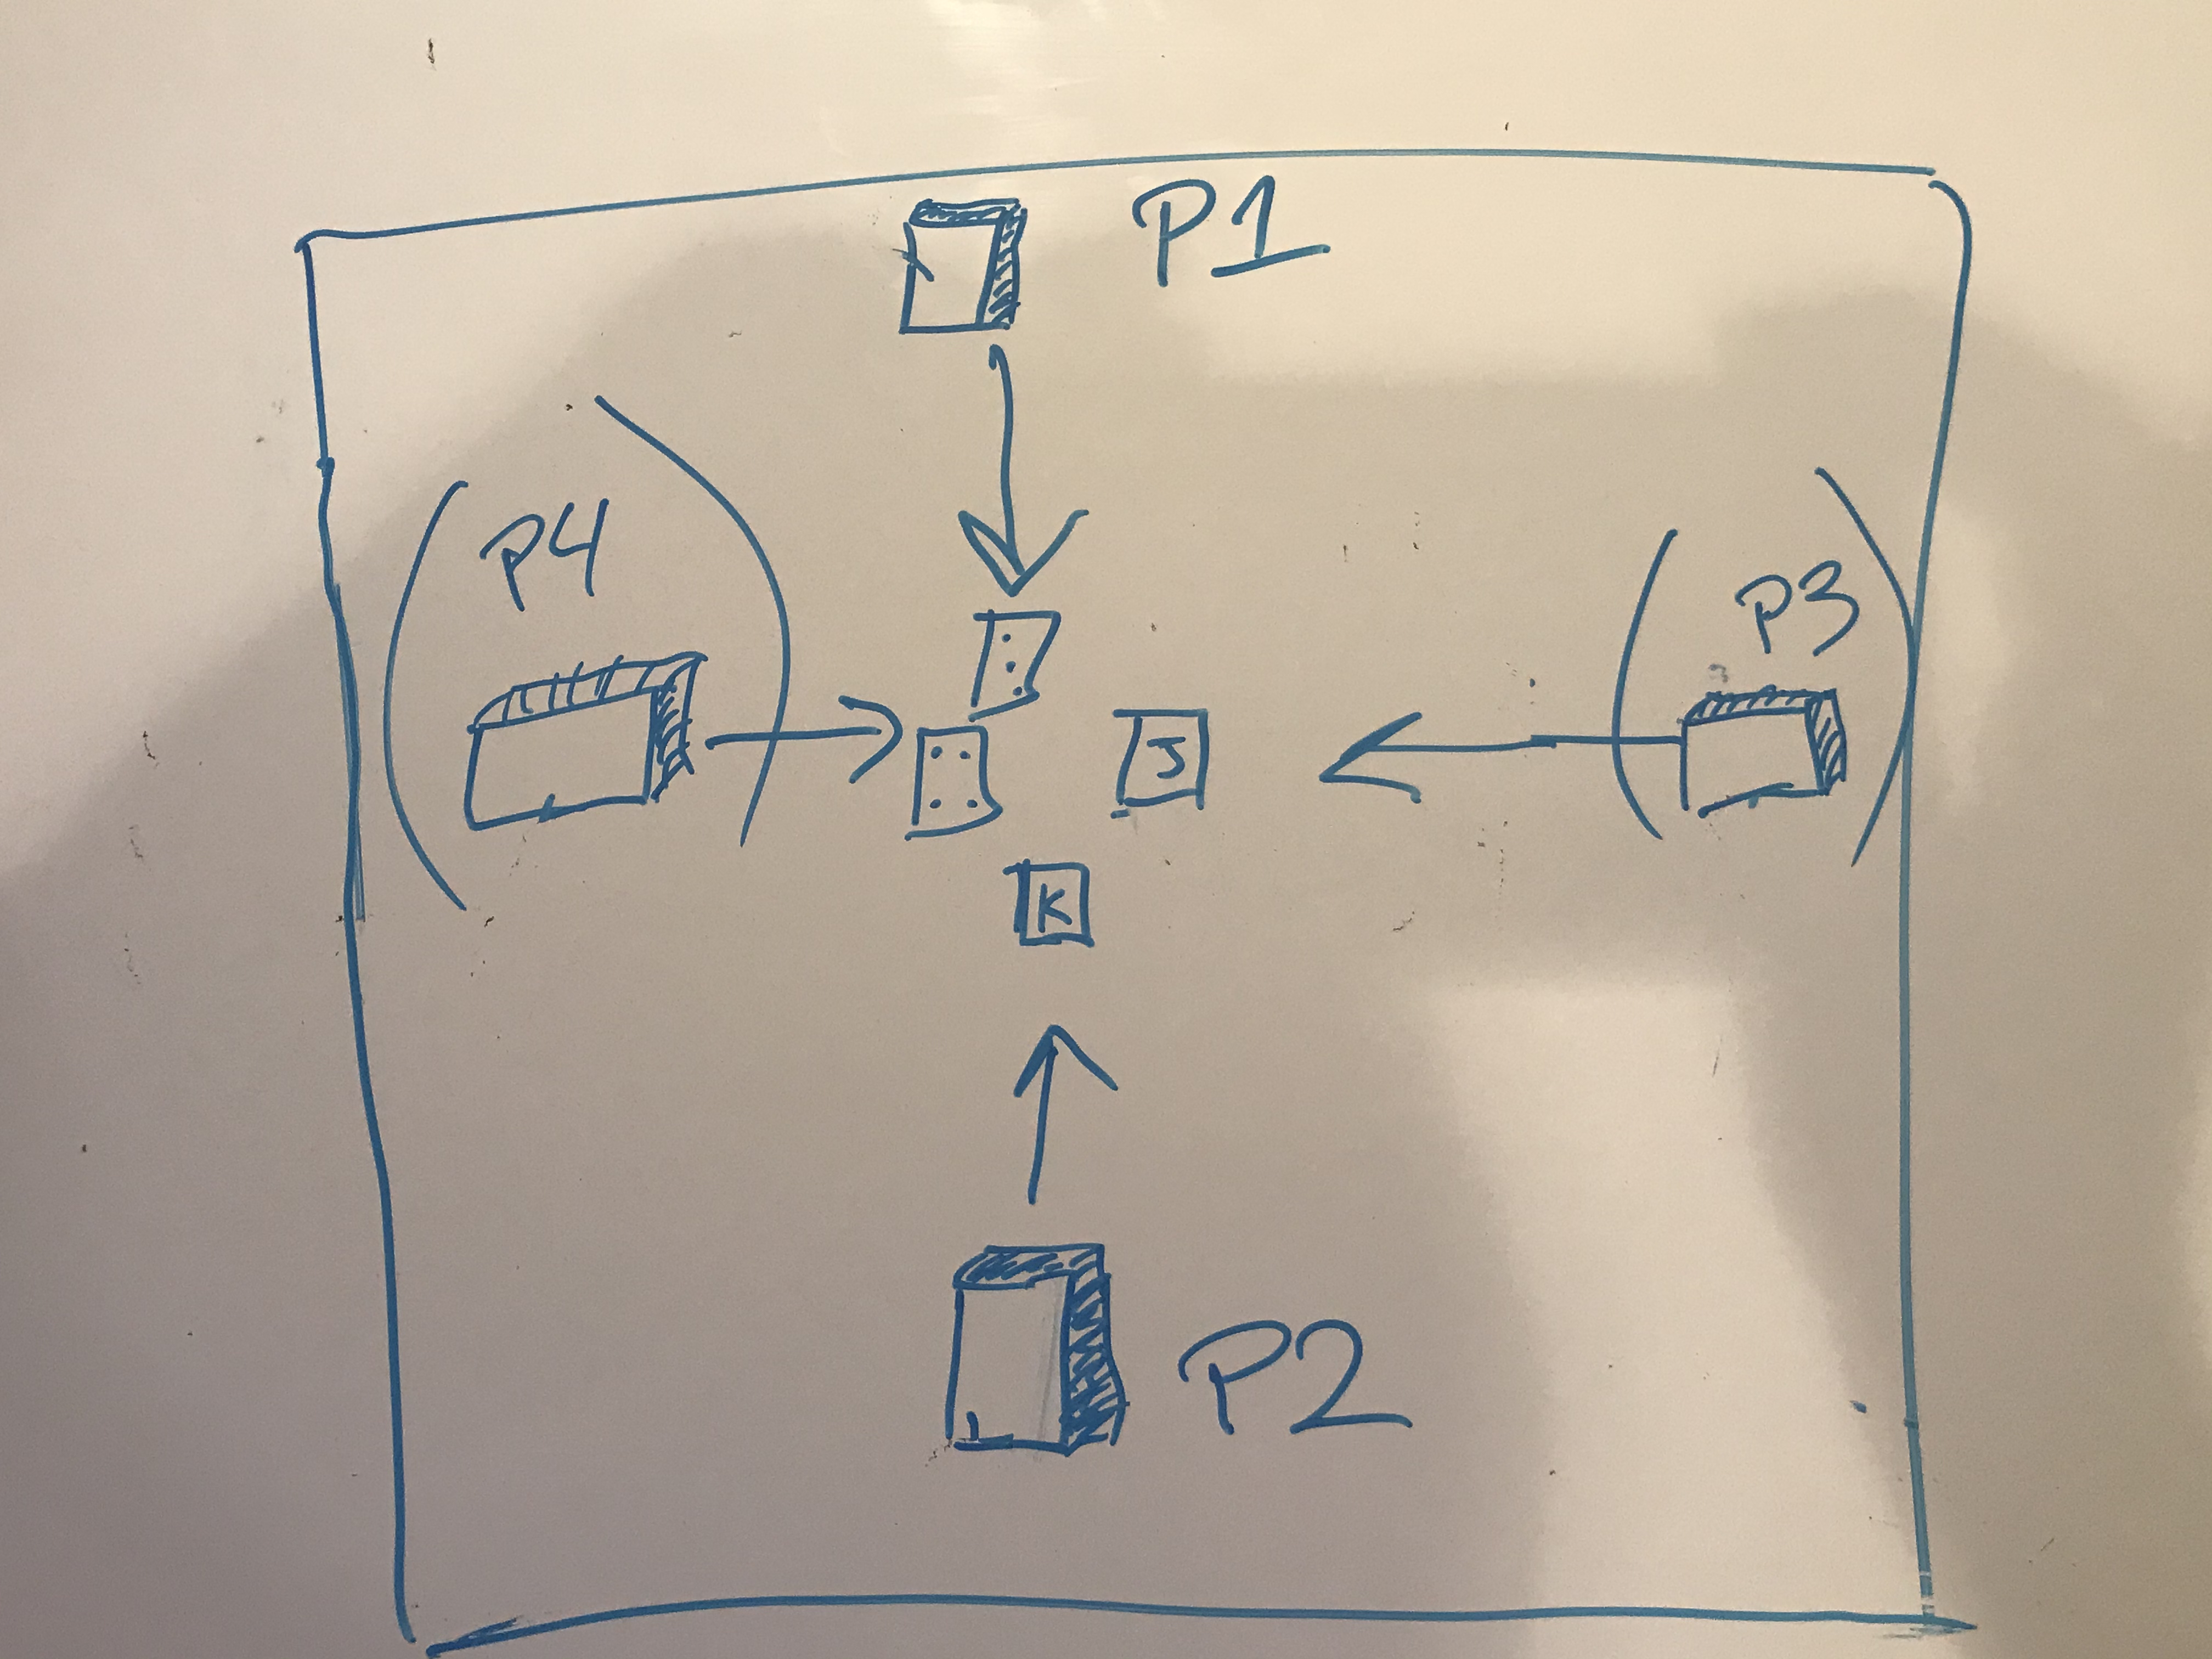 P1
P4
P3
J
K
P2